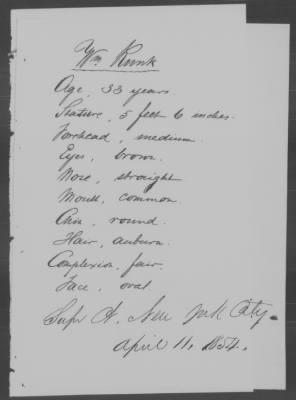 Wm Runk
Age, 33 years.
Stature, 5 feet 6 inches.
Forehead, medium.
Eyes, brown.
Nose, straight
Mouth, common.
Chin, round.
Hair, auburn.
Complexion, fair.
Face, oval.
New York City.
April 11, 1854.